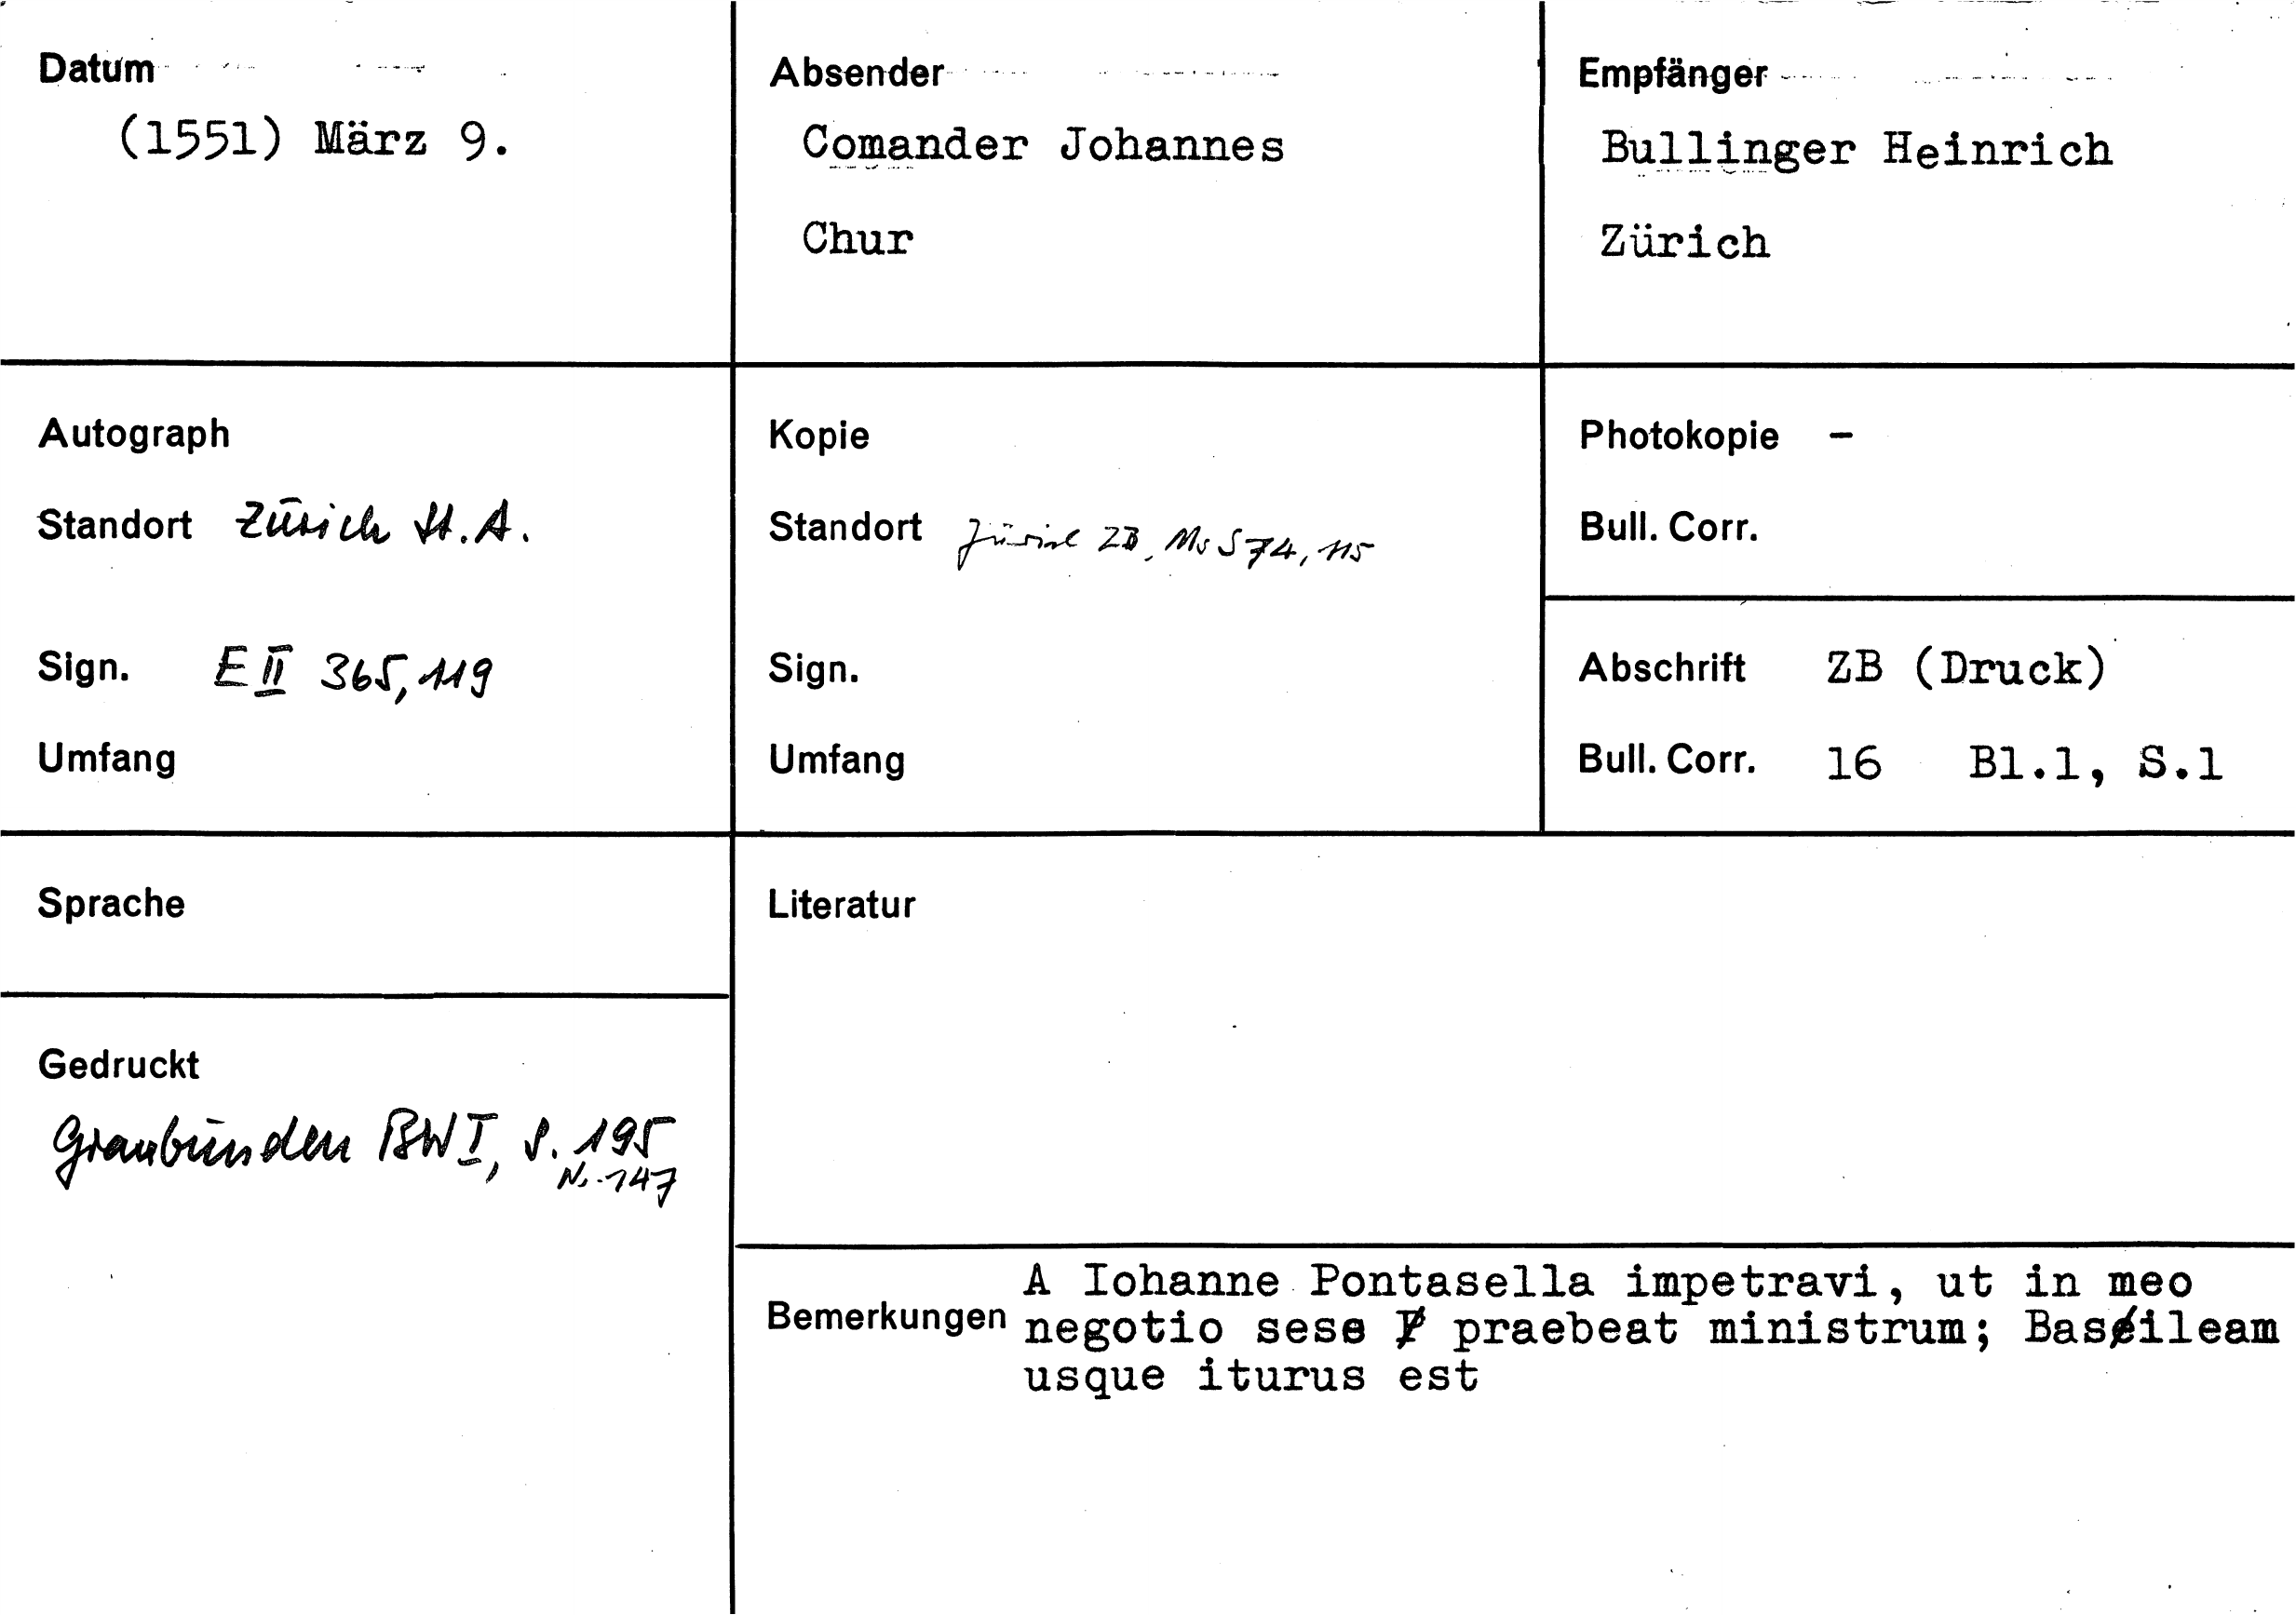 Datum
(1551) März 9.
Absender
Comander Johannes
Chur
Empfänger
Bullinger Heinrich
Zürich
Autograph
Standort Zürich St.A.
Sign. E II 365,119
Umfang
Kopie
Standort Zürich ZB, Ms S 74, 115
Sign.
Umfang
Photokopie –
Bull. Corr.
Abschrift ZB (Druck)
Bull. Corr. 16 Bl.1, S.1
Sprache
Gedruckt
Graubünden BW I, S. 195
Nr. 147
Literatur
Bemerkungen
A Iohanne Pontasella impetravi, ut in meo
negotio sese praebeat ministrum; Basileam
usque iturus est